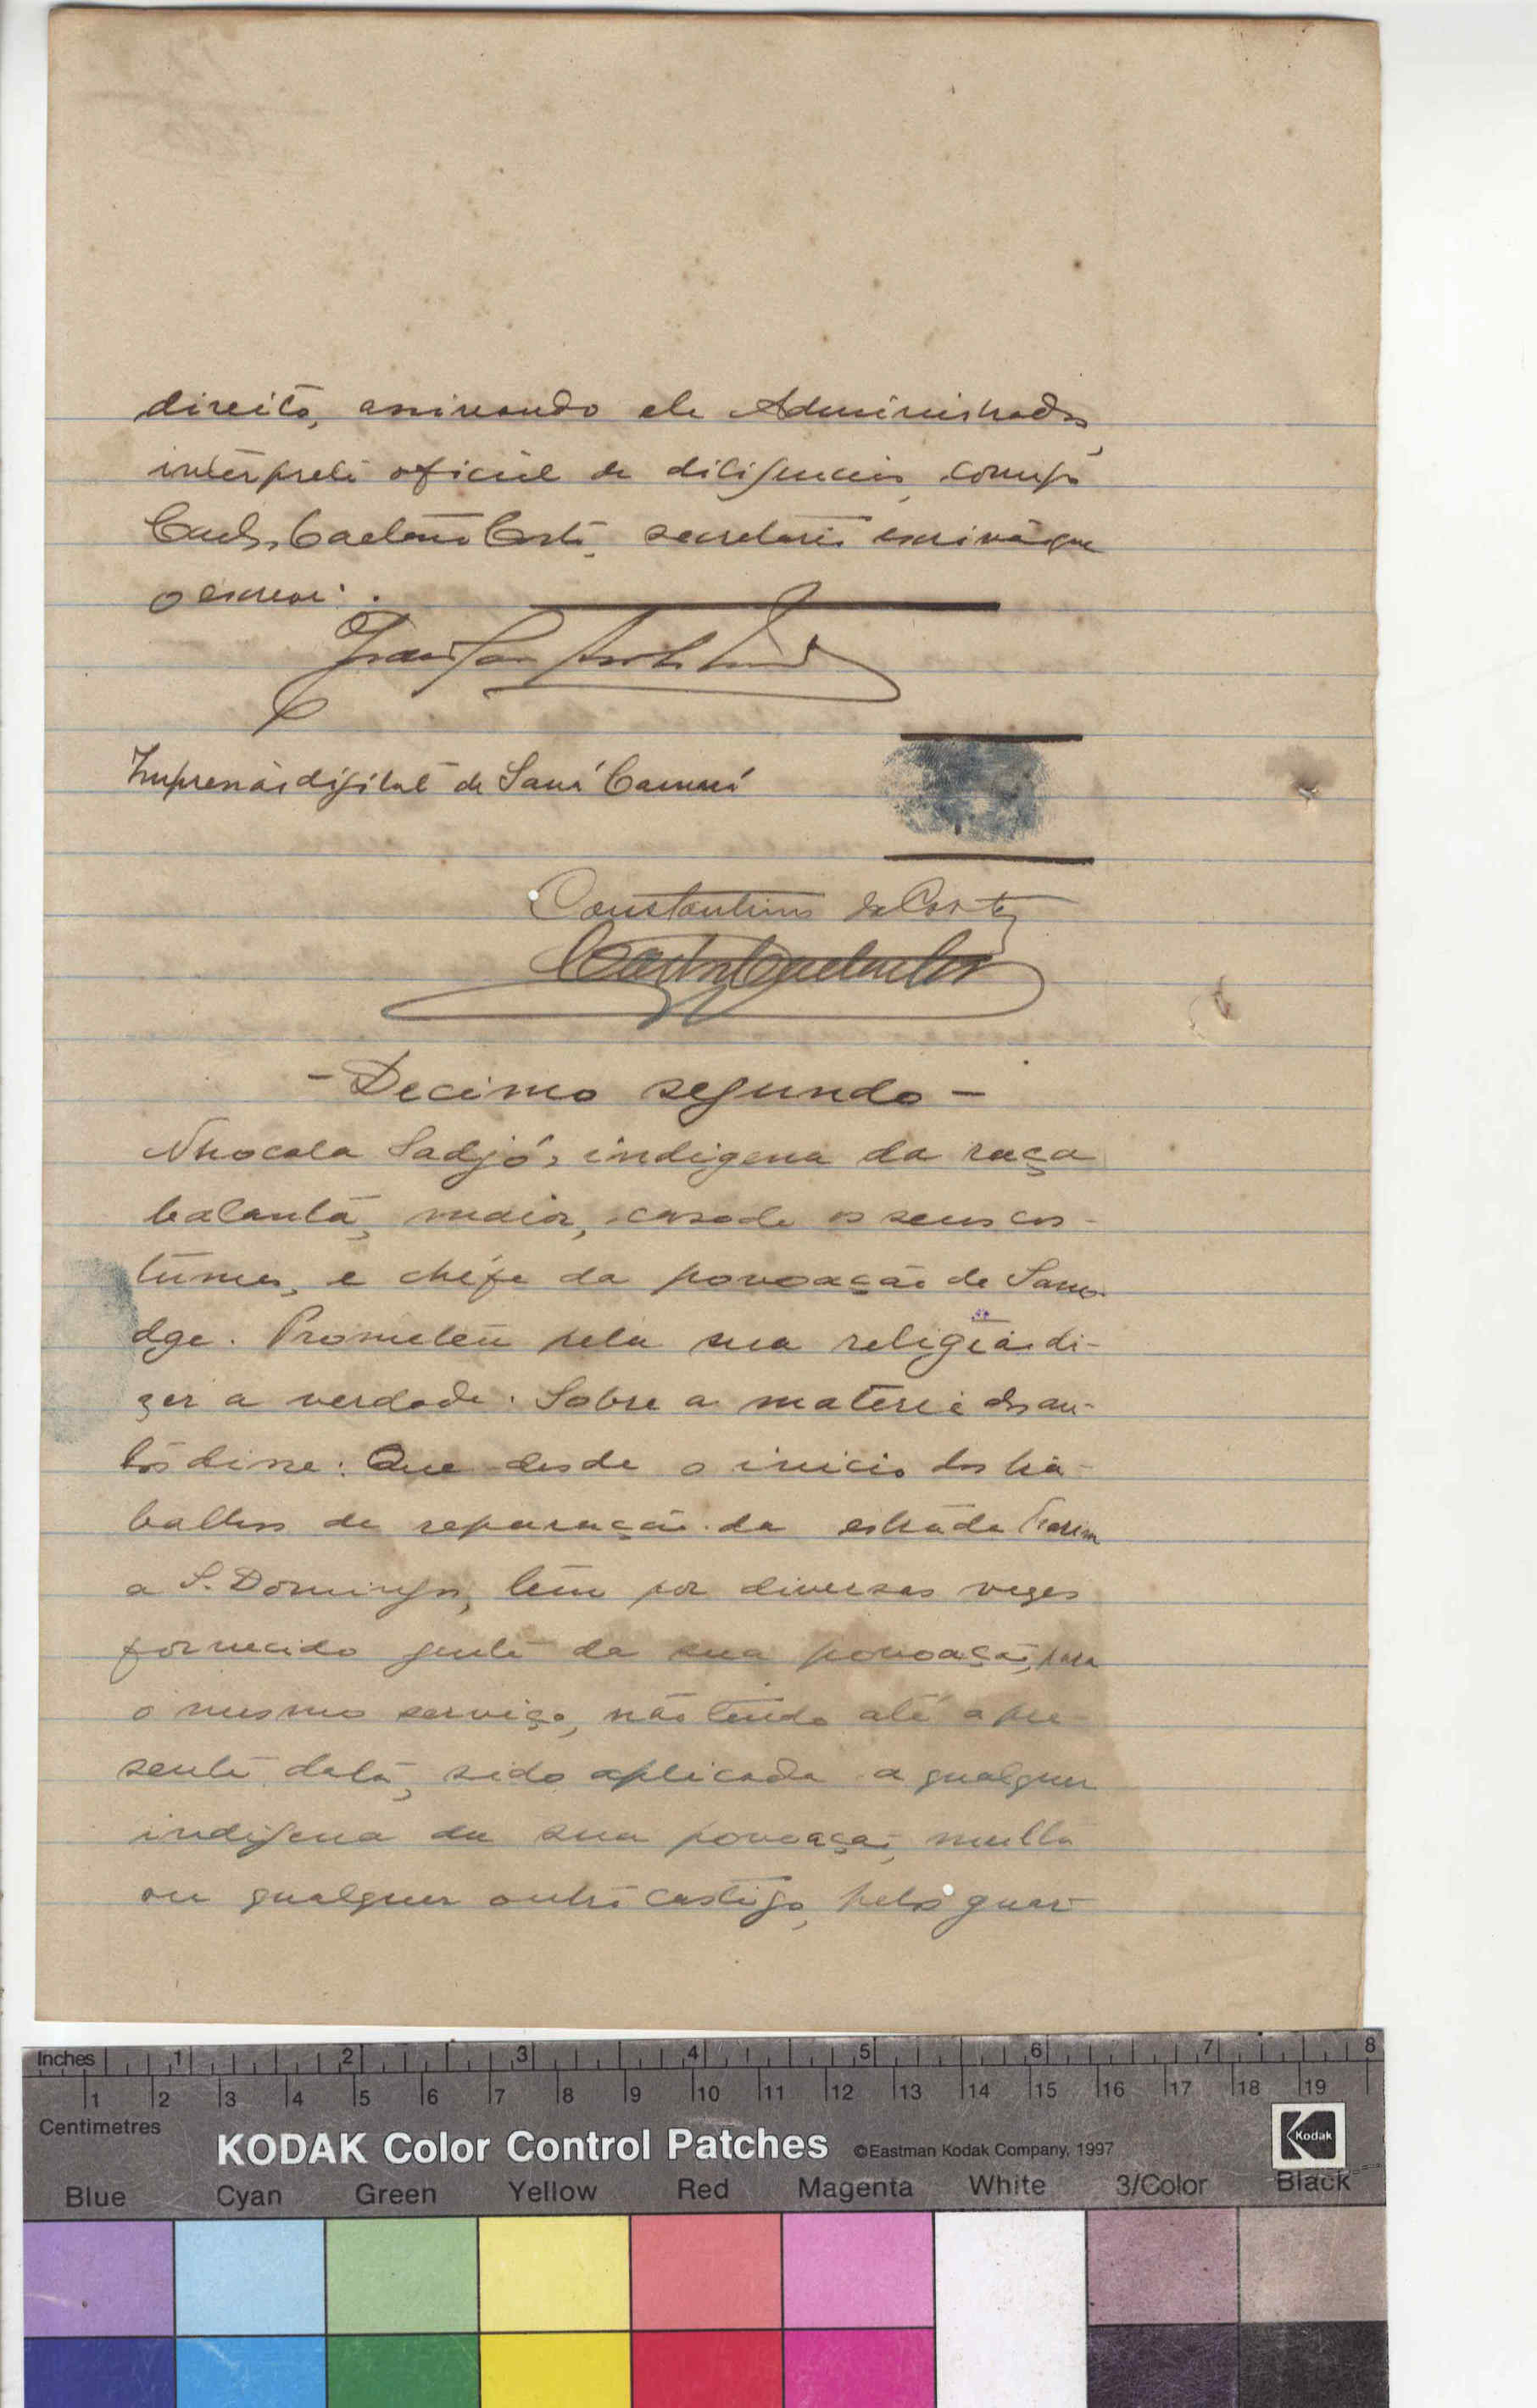 direito, assinando ele Administrador,
intérprete oficial de diligencias, comigo
Carlos Caetano Costa, secretario escrivão que
o escrevi.
Impressão digital de Saná Camará
Constantino da Costa
- Decimo segundo -
Nhocola Sadjó, indigena da raça
balanta, maior, casado os seus cos-
tumes, e chefe da povoação de
dge. Prometeu pela sua religião di-
zer a verdade. Sobre a materia dos au-
tos disse: Que desde o inicio dos tra-
balhos de reparação da estrada Farim
a S. Domingos, tem por diversas vezes
fornecido gente da sua povoação, para
o mesmo serviço, não tendo até a pre-
sente data, sido aplicada a qualquer
indigena da sua povoação, multa
ou qualquer outro castigo, pelo guar-
Inches 1 2 3 4 5 6 7 8
1 2 3 4 5 6 7 8 9 10 11 12 13 14 15 16 17 18 19
Centimetres
KODAK Color Control Patches ©Eastman Kodak Company, 1997 Kodak
Blue Cyan Green Yellow Red Magenta White 3/Color Black